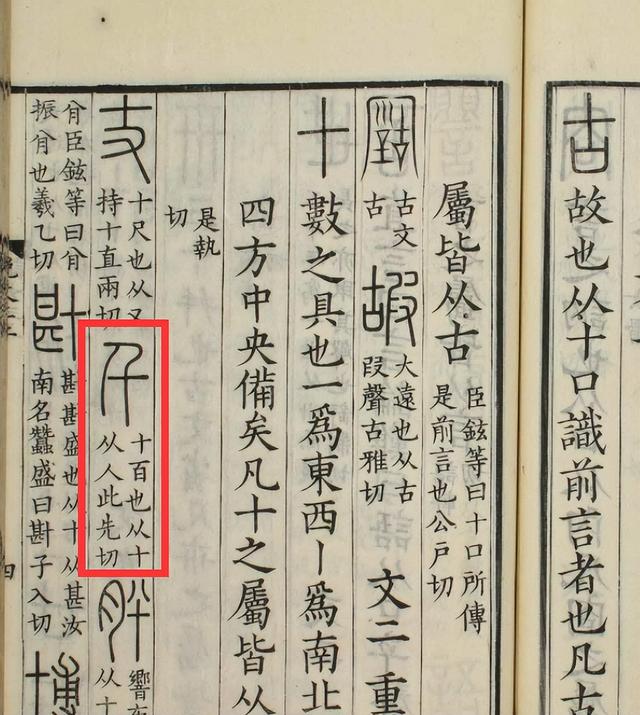 古故也从十口識前言者也凡古
屬皆从古臣鉉等曰十口所傳
是前言也公戶切
古文
古
嘏大遠也从古
叚聲古雅切
文二重
十數之具也一爲東西丨爲南北
四方中央備矣凡十之屬皆从
是執
切
丈十尺也从又
持十直兩切
千十百也从十
从人此先切
肸響布
从十
䏌臣鉉等曰䏌
振䏌也羲乙切
卙卙卙盛也从十从甚汝
南名蠶盛曰卙子入切
博